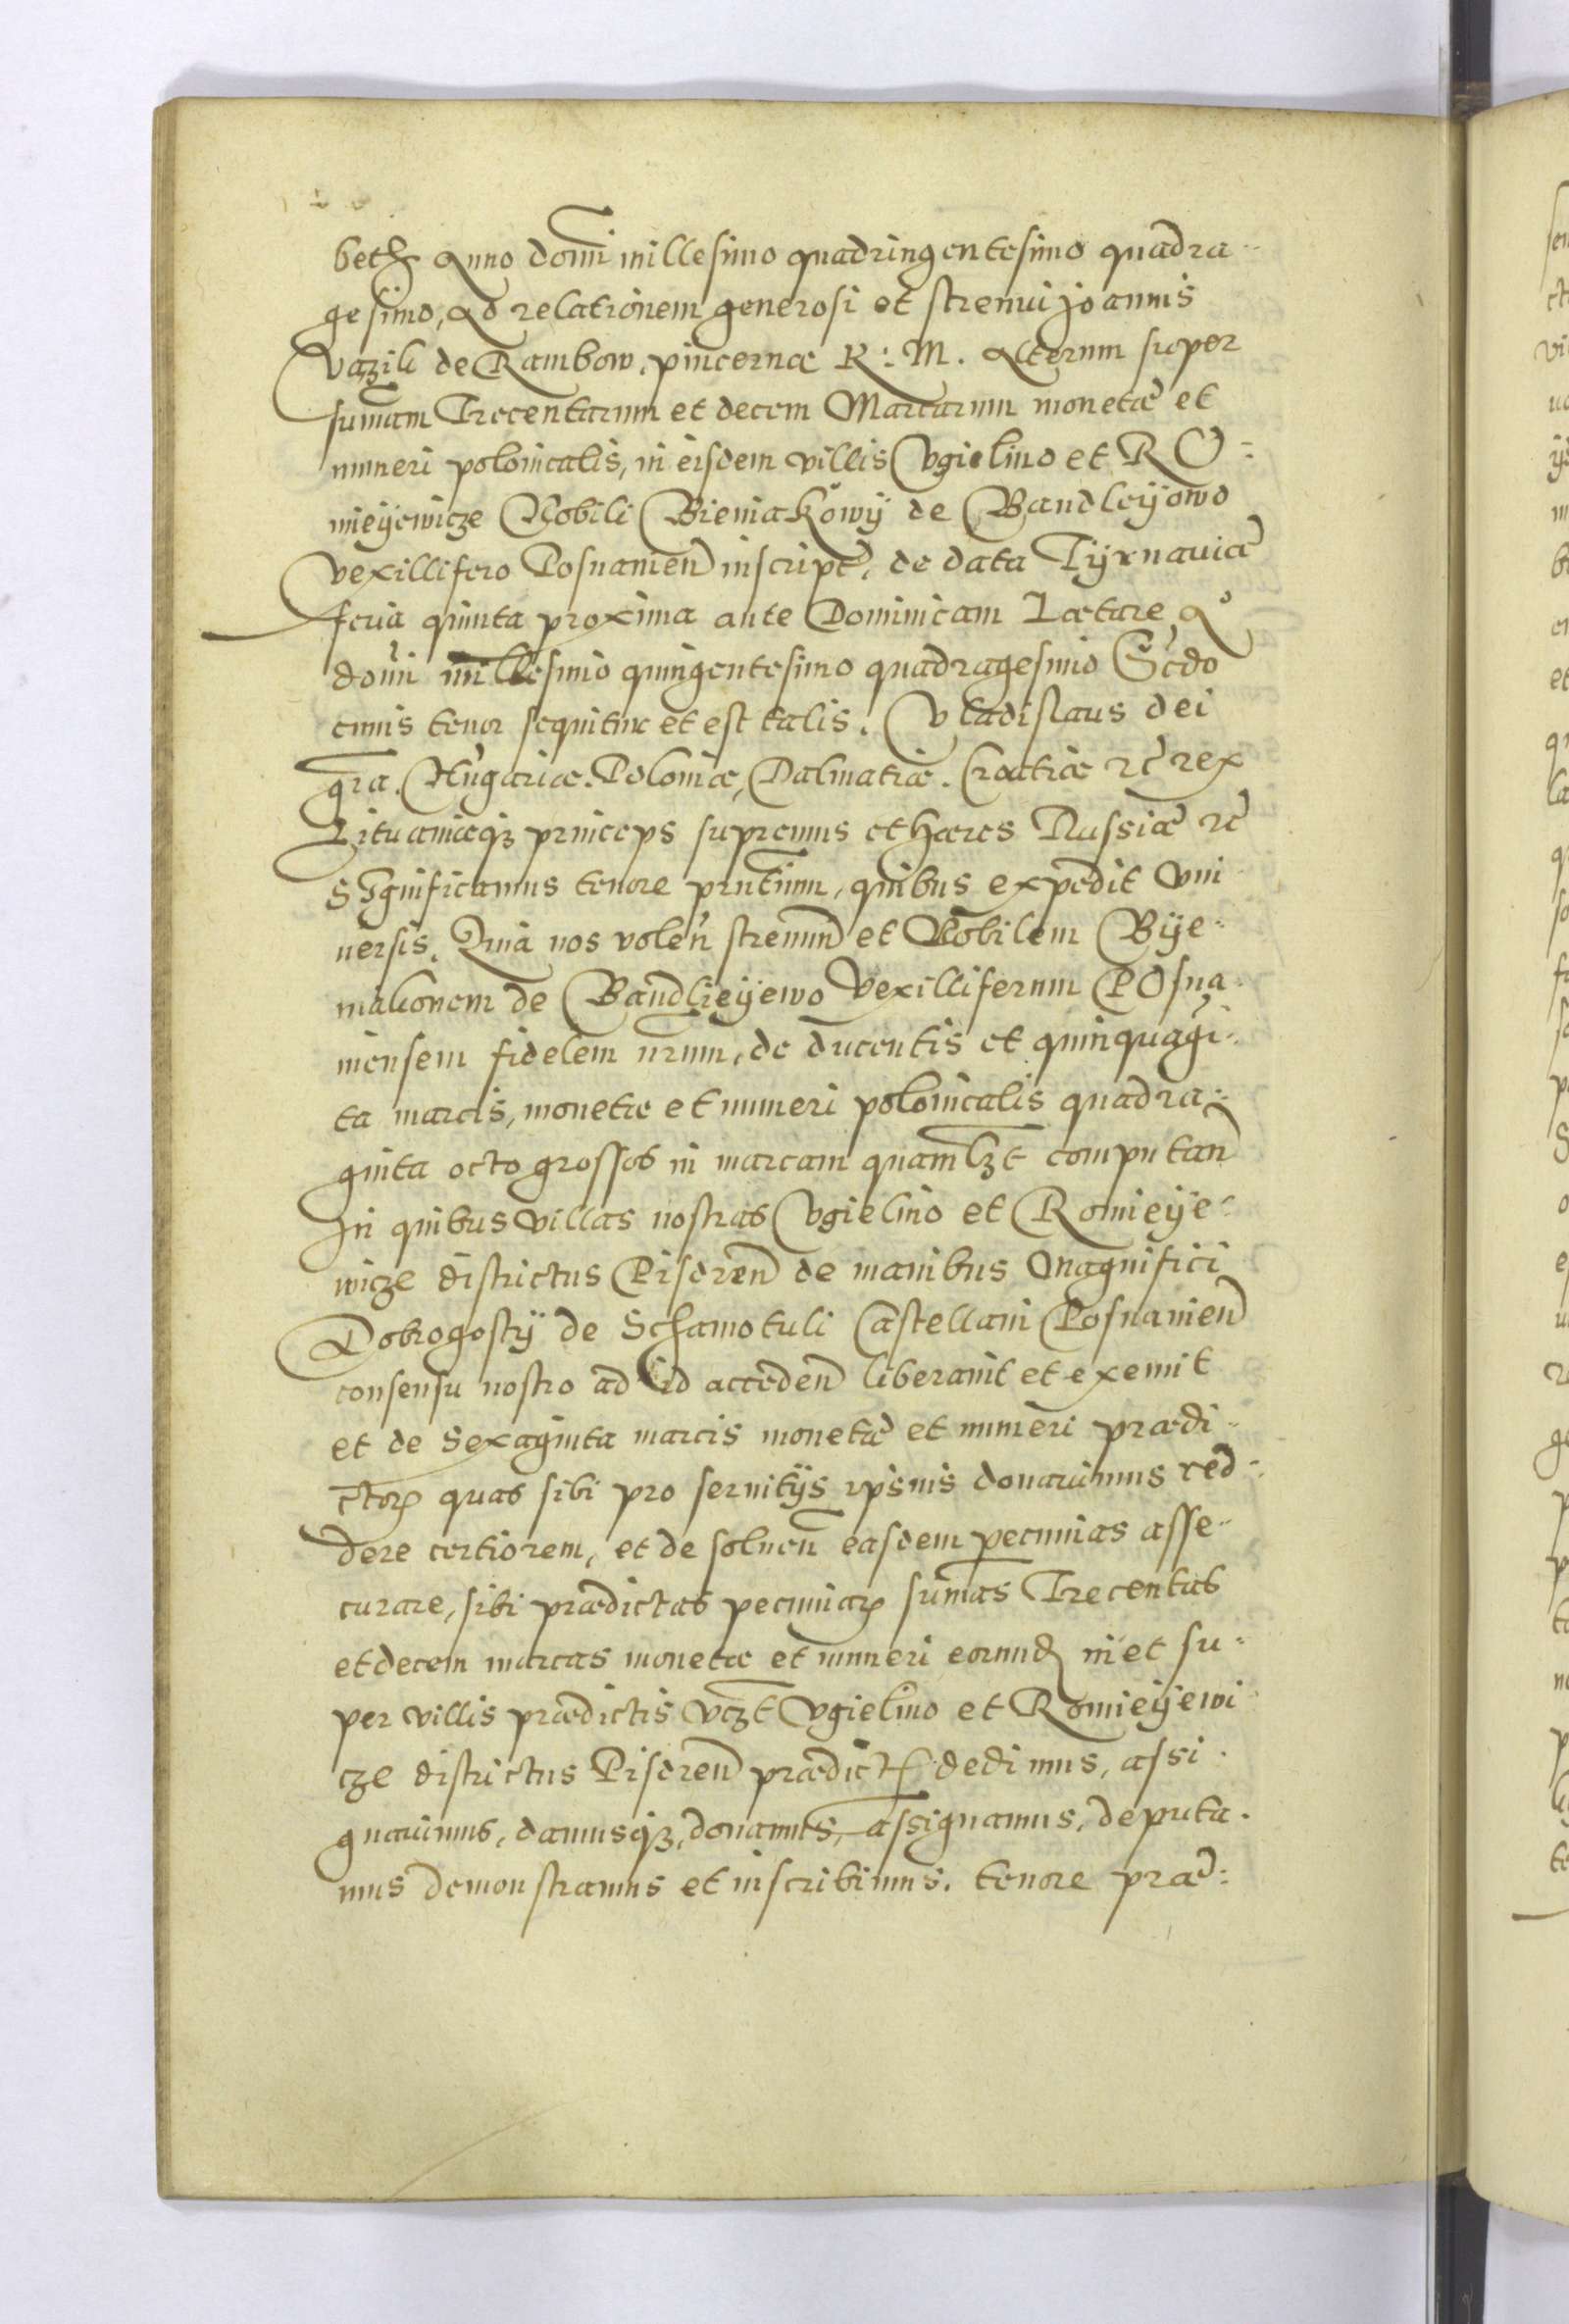 beth Anno domi millesimo quadringentesimo quadra
gesimo, Ad relationem generosi et strenui joannis
Vazili de Rambow, pincernæ R: M. Alterum super
sumam Trecentarum et decem Marcarum monetæ et
numeri polonicalis, in eisdem villis Vgielino et RO=
mieyewicze Nobili Bieniakowy de Bandleyowo
vexillifero Posnanien inscript, de data Tyrnauiæ
feria quinta proxima ante Dominicam Lætare Ao
domi millesimo quingentesimo quadragesimo Scdo
cuius tenor sequitur et est talis. Vladislaus dei
gra. Hungariæ. Poloniæ, Dalmatiæ. Croatiæ rc rex
Lituaniæq3 princeps supremus et hæres Russiæ rc
SIgnificamus tenore prntium, quibus expedit vni
uersis. Quia nos volen strenuum et Nobilem Bye=
niakonem de Bandlieyewo Vexilliferum POsna
niensem fidelem nrum, de ducentis et quinquagi
ta marcis, monetæ et numeri polonicalis quadra=
ginta octo grossos in marcam quamlzt computan
In quibus villas nostras Vgielino et Romieye=
wicze districtus Pisdren de manibus Magnifici
Dobrogosty de Schamotuli Castellani Posnanien
consensu nostro ad id acceden liberauit et exemit
et de Sexaginta marcis monetæ et numeri prædi
ctor quas sibi pro seruitijs ipsius donauimus red=
dere certiorem, et de soluen easdem pecunias asse=
curare, sibi prædictas pecuniar sumas Trecentas
et decem marcas monetæ et numeri eorund in et su=
per villis prædictis vczt Vgielino et Romieyewi
cze districtus Pisdren prædict dedimus, assi
gnauimus, damusq3, donamus, assignamus, deputa
mus demonstramus et inscribimus. tenore præ=